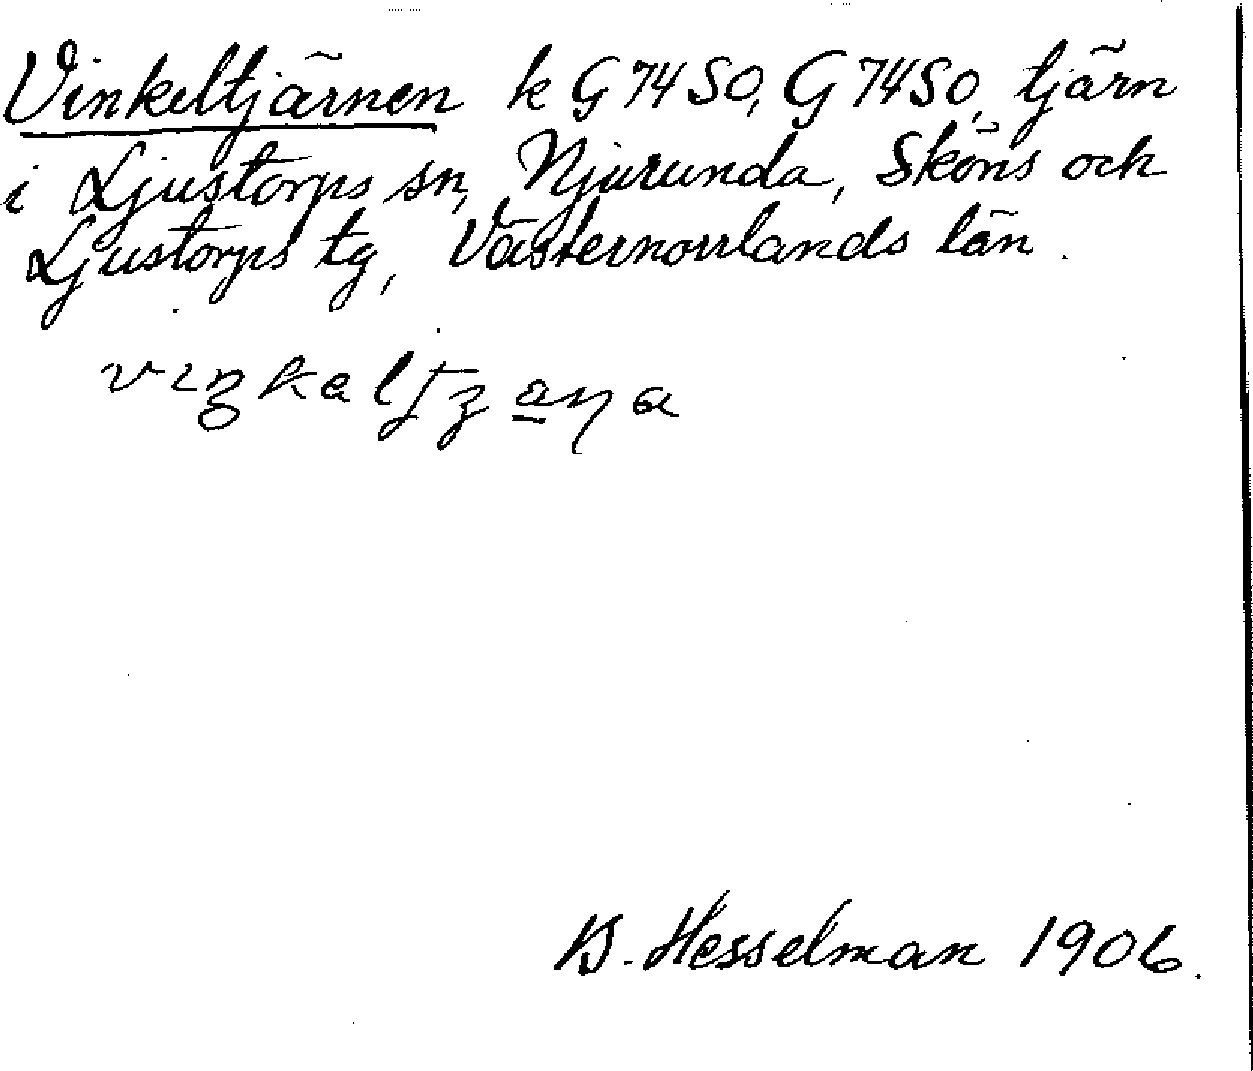 Vinkeltjärnen k G 74 SO, G 74 SO, tjärn
i Ljustorps sn, Njurunda, Sköns och
Ljustorps tg, Västernorrlands län.
B. Hesselman 1906.